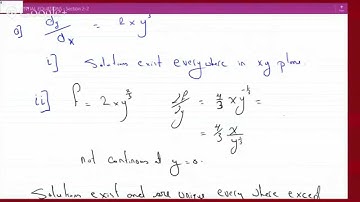 EQUATIONS - Section 2-2
dy/dx = 2 x y^
i] Solution exist everywhere in xy plane.
ii] f = 2 x y^{2/3} ∂f/∂y = 4/3 x y^{-1/3} =
= 4/3 x/y^{1/3}
not continous at y = 0.
Solutions exist and are unique every where except